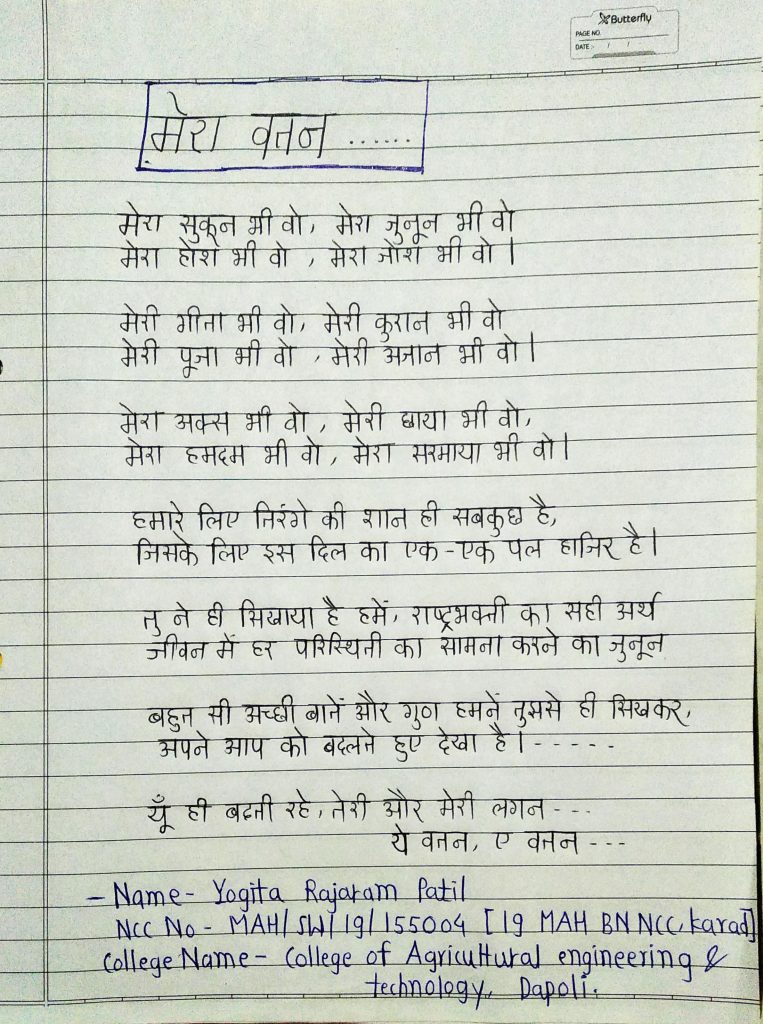 Butterfly
PAGE NO.
DATE:- / /
मेरा वतन ......
मेरा सुकून भी वो, मेरा जुनून भी वो
मेरा होश भी वो , मेरा जोश भी वो ।
मेरी गीता भी वो, मेरी कुरान भी वो
मेरी पूजा भी वो , मेरी अजान भी वो ।
मेरा अक्स भी वो , मेरी छाया भी वो,
मेरा हमदम भी वो , मेरा सरमाया भी वो ।
हमारे लिए तिरंगे की शान ही सबकुछ है,
जिसके लिए इस दिल का एक-एक पल हाजिर है ।
तु ने ही सिखाया है हमें, राष्ट्रभक्ती का सही अर्थ
जीवन में हर परिस्थिती का सामना करने का जुनून
बहुत सी अच्छी बातें और गुण हमनें तुमसे ही सिखकर,
अपने आप को बदलते हुए देखा है । - - - - -
यूँ ही बढती रहे, तेरी और मेरी लगन - - -
ये वतन, ए वतन - - -
- Name - Yogita Rajaram Patil
NCC No - MAH/SW/19/155004 [19 MAH BN NCC, Karad]
College Name - College of Agricultural engineering &
technology, Dapoli.